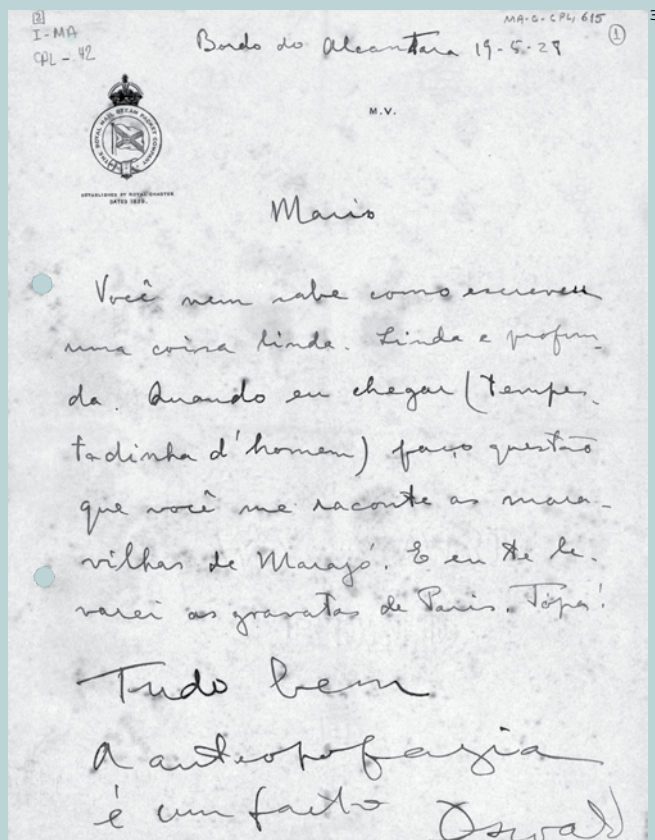 3
I-MA
CPL-42
MA-C-CPL, 615
1
Bordo do Alcantara 19-5-28
M.V.
THE ROYAL MAIL STEAM PACKET COMPANY
ESTABLISHED BY ROYAL CHARTER
DATED 1839.
Mario
Você nem sabe como escreveu
uma coisa linda. Linda e profun_
da. Quando eu chegar (tempes_
tadinha d'homem) faço questão
que você me raconte as mara_
vilhas de Marajó. E eu te le_
varei as gravatas de Paris. Topa!
Tudo bem
A antropofagia
é um facto
Oswald